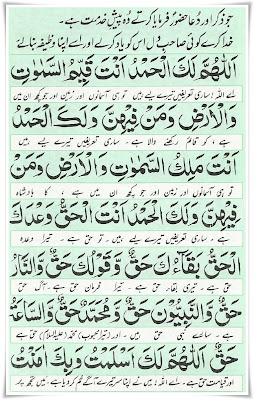 جو ذکر اور دُعا حضورؐ فرمایا کرتے وُہ پیشِ خدمت ہے۔
خدا کرے کوئی صاحبِ دل اس کو یاد کرے اور اسے اپنا وظیفہ بنائے
اَللّٰهُمَّ لَكَ الْحَمْدُ اَنْتَ قَيِّمُ السَّمٰوٰتِ
اے اللہ! ساری تعریفیں تیرے لیے ہیں تو ہی آسمانوں
وَالْاَرْضِ وَمَنْ فِيْهِنَّ وَلَكَ الْحَمْدُ
ہے، کو قائم رکھنے والا ہے، ساری تعریفیں تیرے لیے ہیں،
اَنْتَ مَلِكُ السَّمٰوٰتِ وَالْاَرْضِ وَمَنْ
تو ہی آسمانوں اور زمین اور جو کچھ ان میں ہے، کا بادشاہ
فِيْهِنَّ وَلَكَ الْحَمْدُ اَنْتَ الْحَقُّ وَوَعْدُكَ
ہے، ساری تعریفیں تیرے لیے ہیں، تو حق ہے۔ تیرا وعدہ
الْحَقُّ بِقَاءُكَ حَقٌّ وَّقَوْلُكَ حَقٌّ وَّالنَّارُ
حق ہے۔ تیری بقاء حق ہے۔ تیرا فرمان حق ہے۔ آگ حق
حَقٌّ وَّالنَّبِيُّوْنَ حَقٌّ وَّمُحَمَّدٌ حَقٌّ وَّالسَّاعَةُ
ہے۔ سارے نبی حق ہیں۔ اور (تیرا محبوب) محمد (علیہ السلام) حق ہے
حَقٌّ اَللّٰهُمَّ لَكَ اَسْلَمْتُ وَبِكَ اٰمَنْتُ
اور قیامت حق ہے۔ اے اللہ! میں نے اپنا سر تیرے آگے خم کر دیا ہے، میں تجھ پر